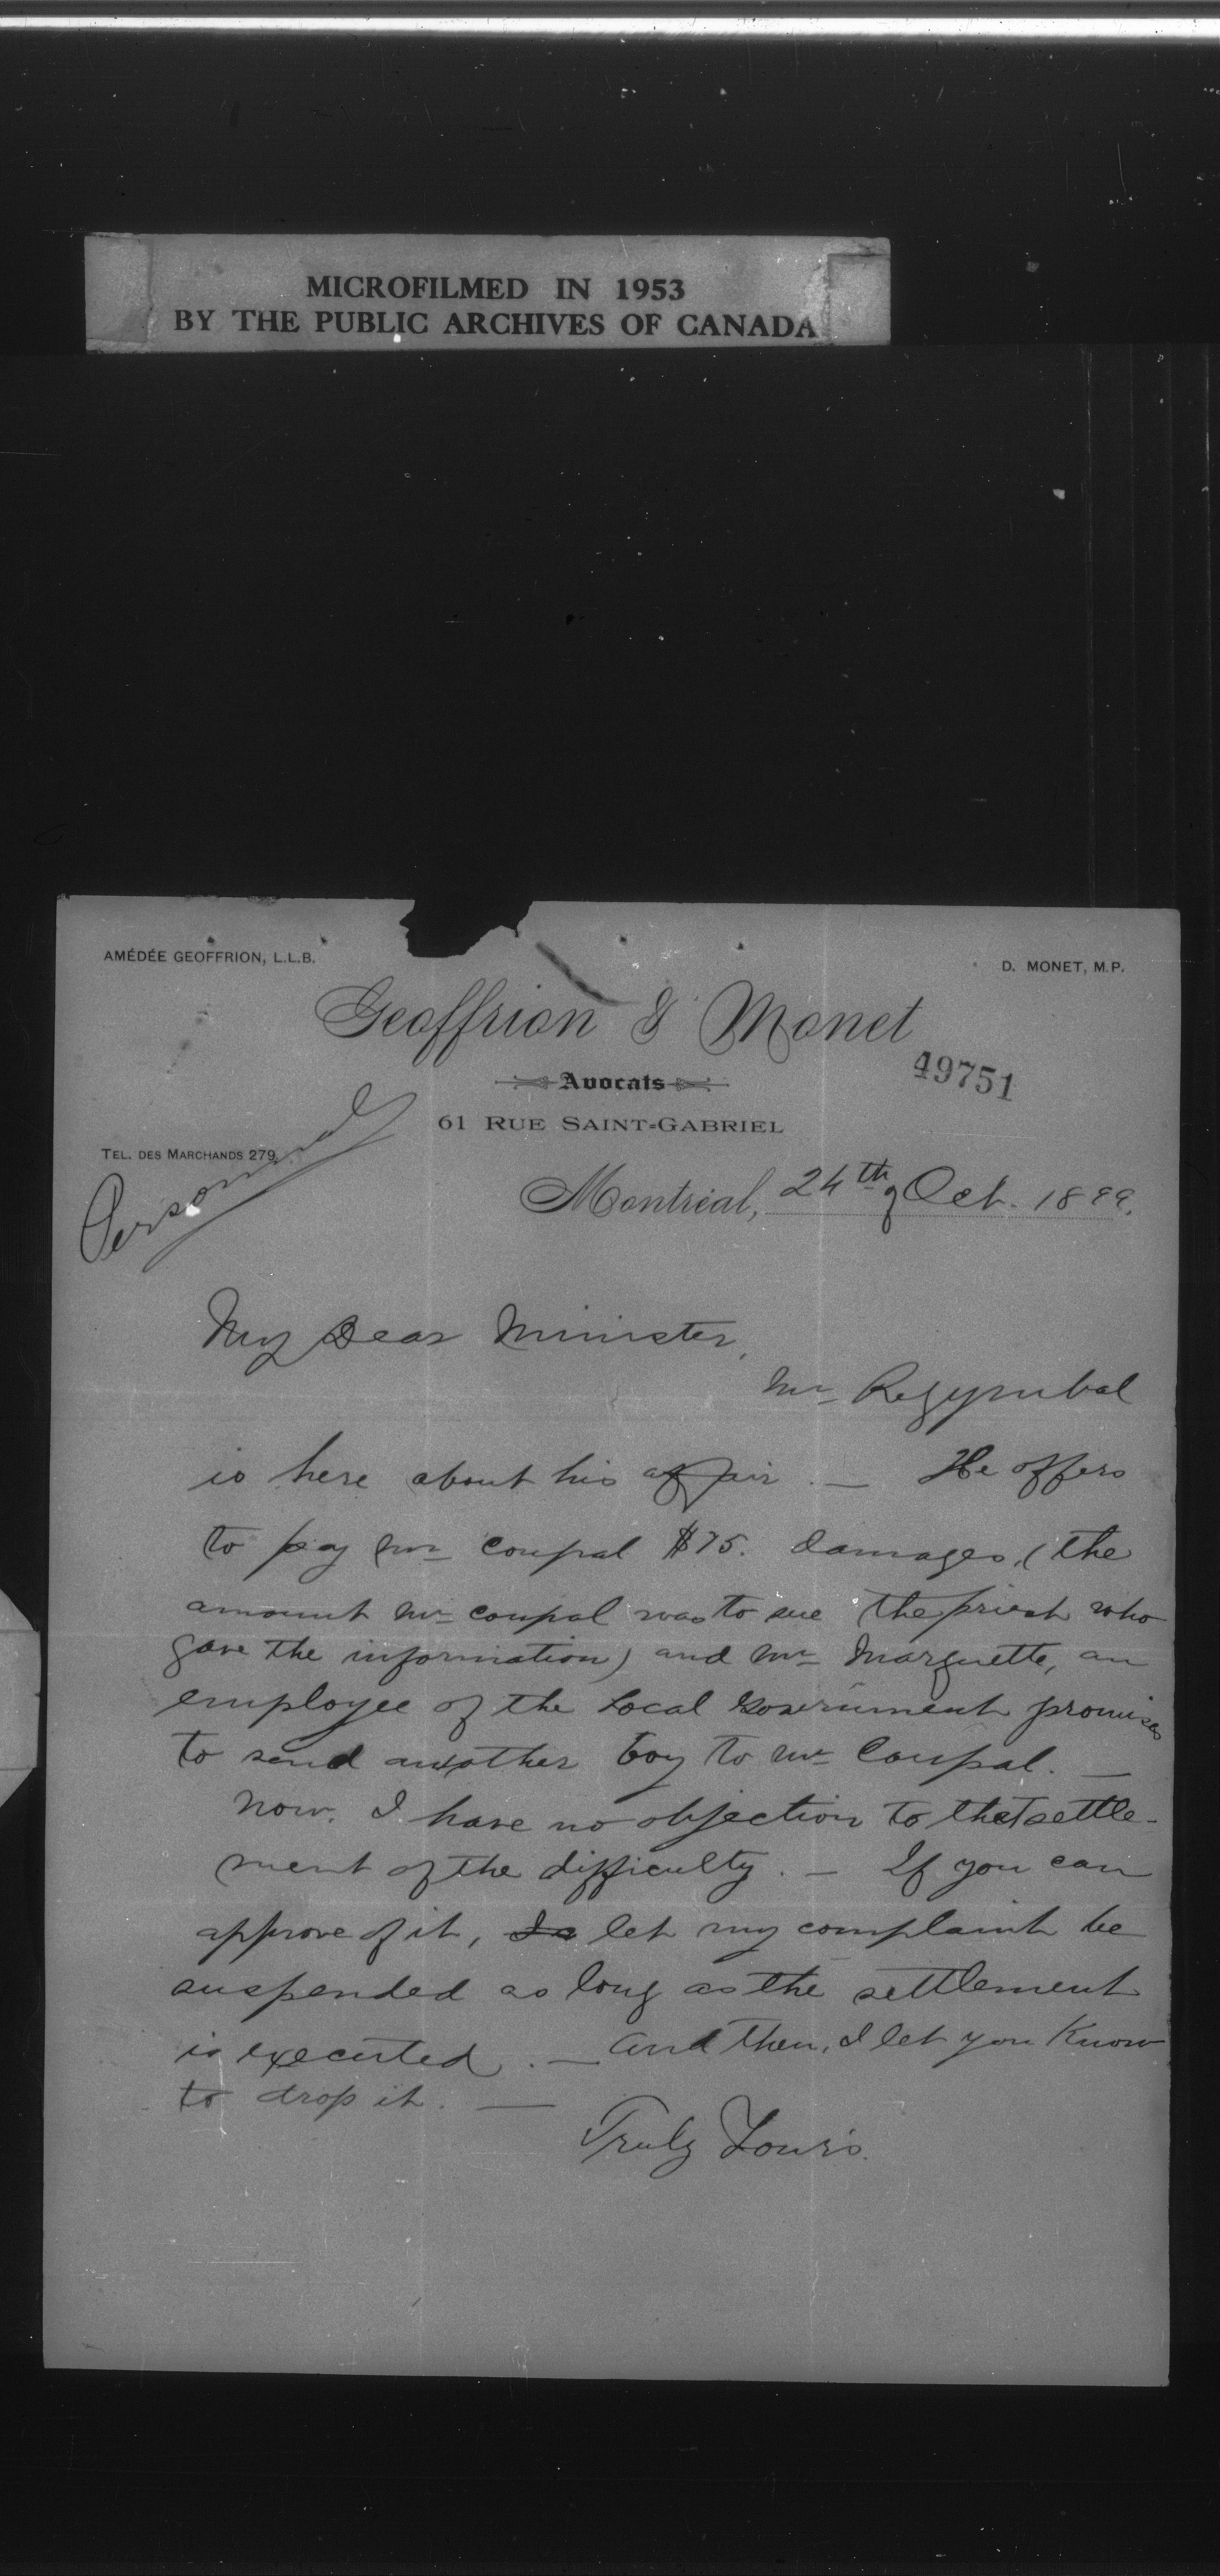 MICROFILMED IN 1953
BY THE PUBLIC ARCHIVES OF CANADA
AMÉDÉE GEOFFRION, L.L.B.
D. MONET, M.P.
Geoffrion & Monet
49751
Avocats
61 RUE SAINT-GABRIEL
TEL. DES MARCHANDS 279.
Personnal
Montréal, 24th of Oct. 1899.
My Dear Minister,
Mr Regymbal
is here about his affair. — He offers
to pay Mr Coupal $75. damages, (the
amount Mr Coupal was to sue the priest who
gave the information) and Mr Marquette, an
employee of the Local Government promises
to send another boy to Mr Coupal. —
Now. I have no objection to that settle-
ment of the difficulty. — If you can
approve of it, let my complaint be
suspended as long as the settlement
is executed. — And then, I let you know
to drop it. —
Truly Yours.